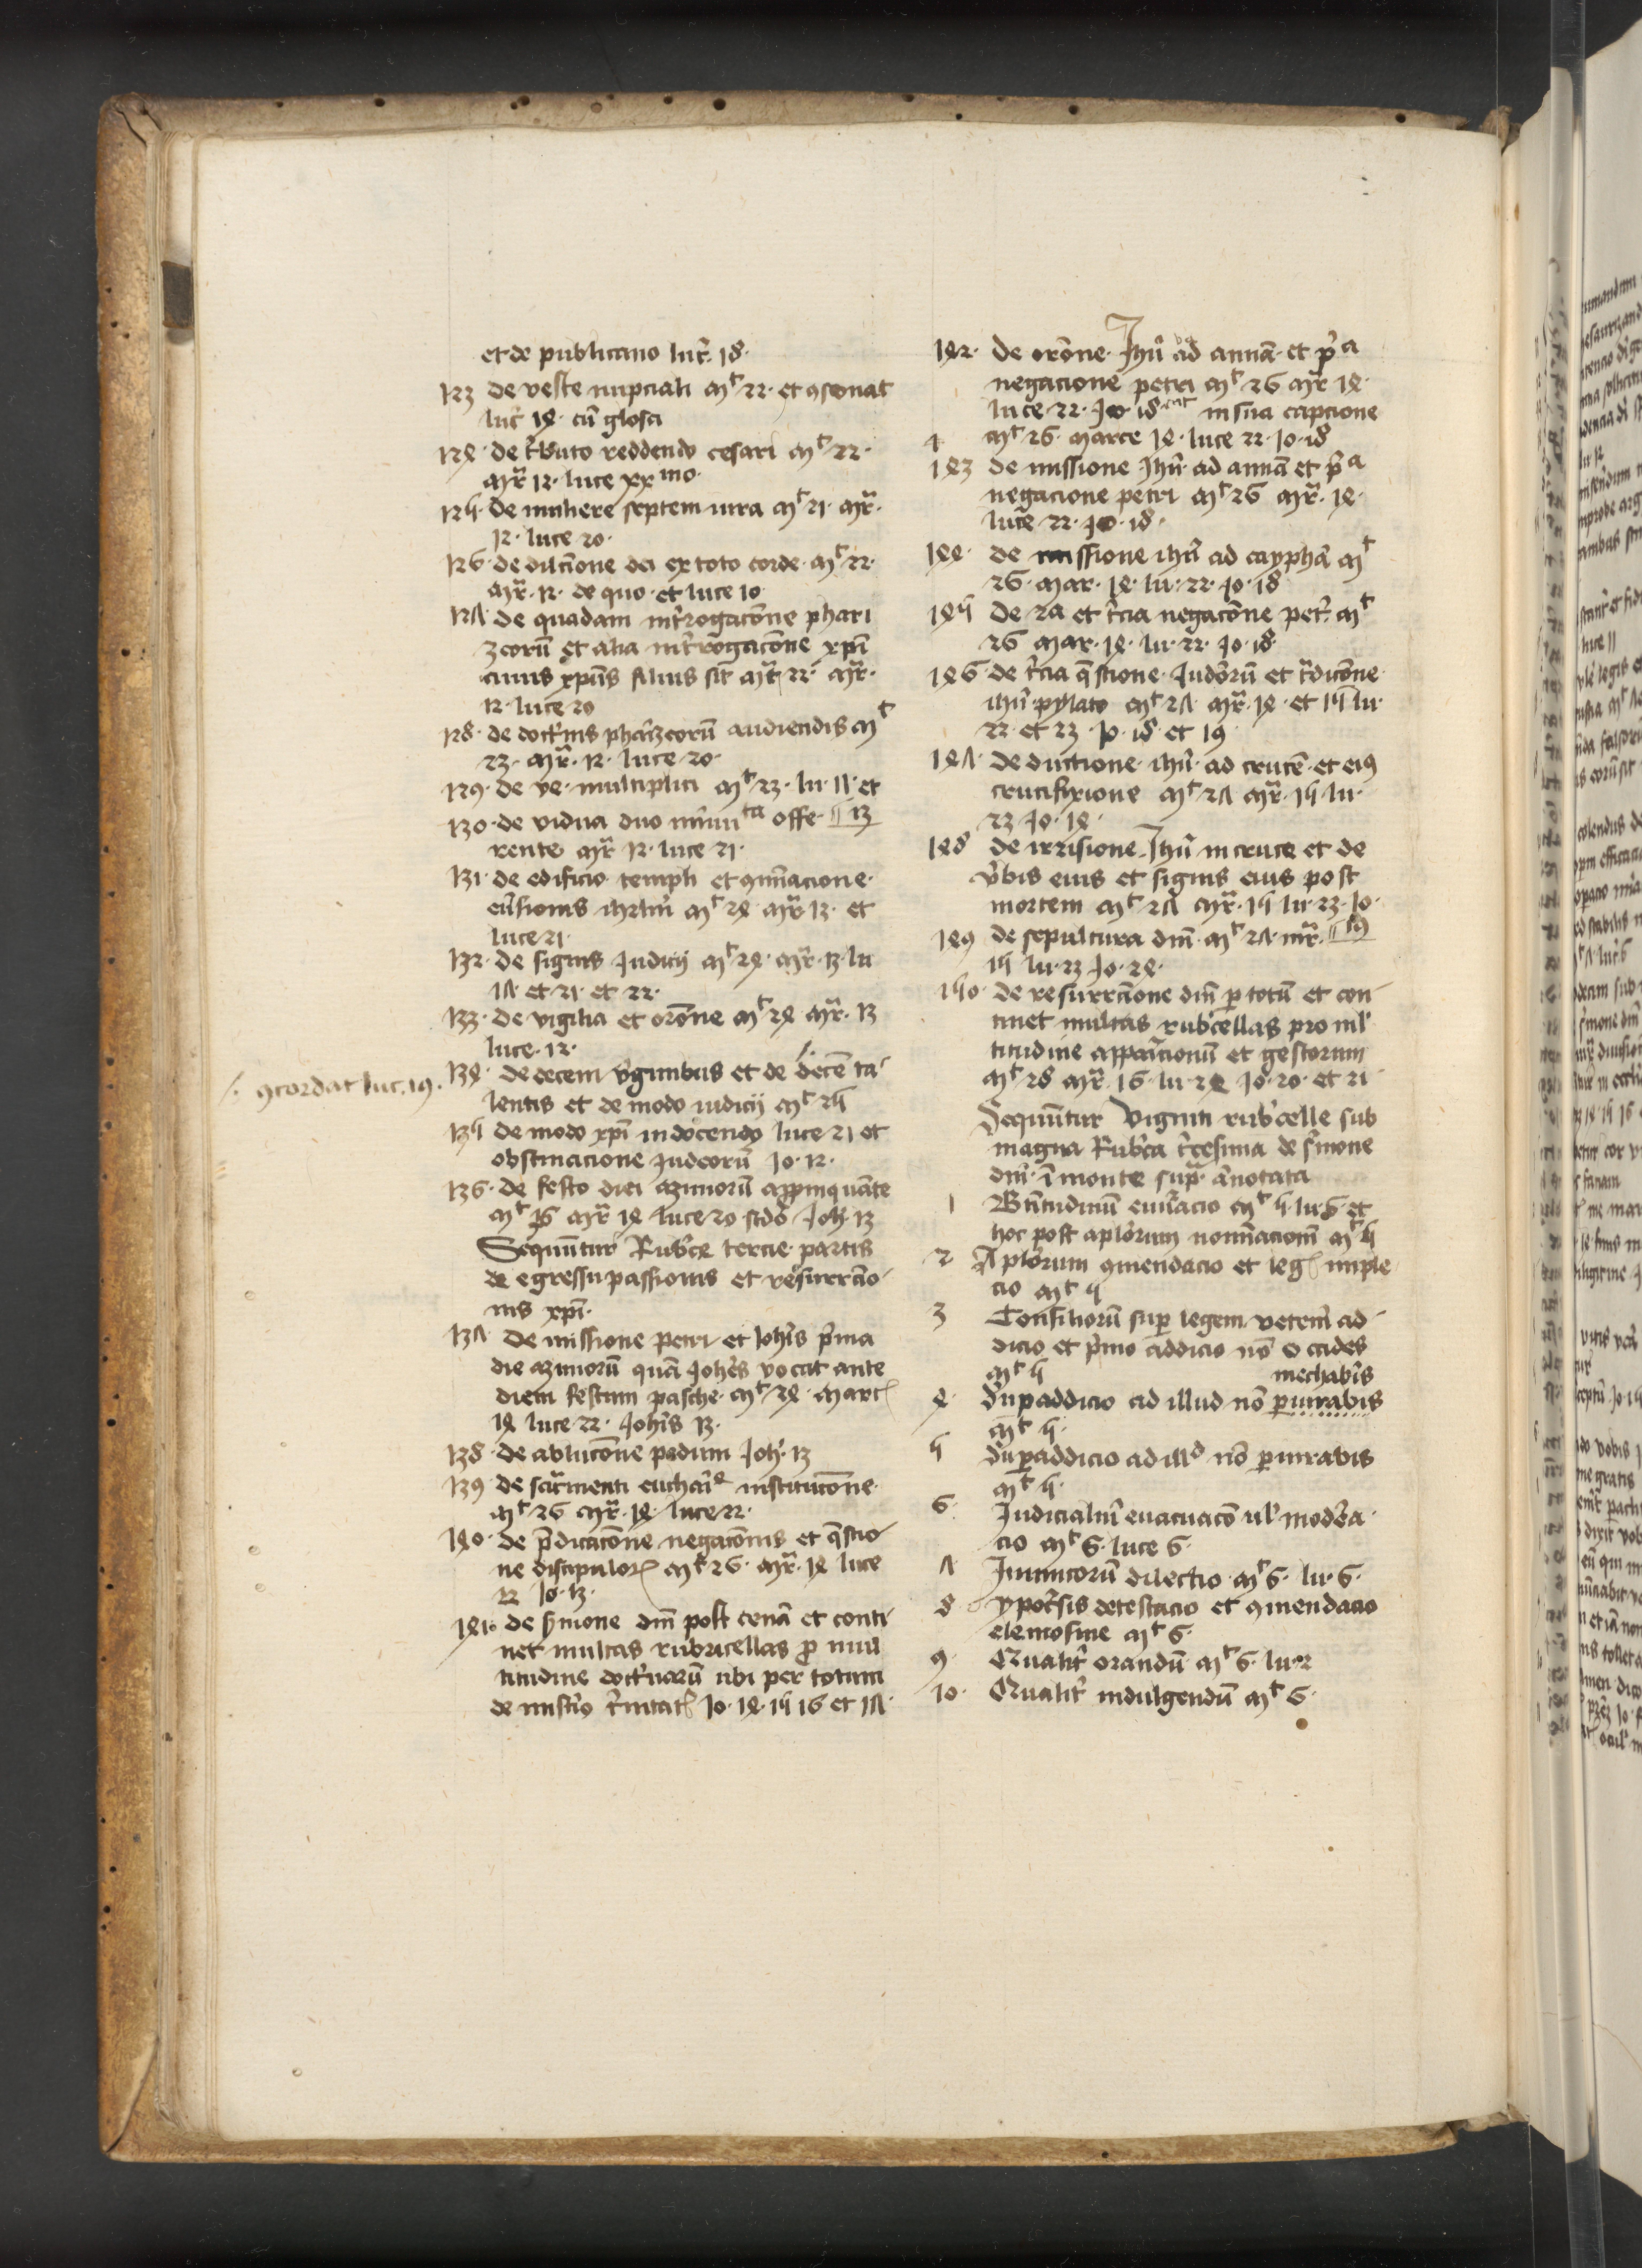 et de publicano luc̄ 18·
123 de veste nupciali mt 22· et ꝯsonat
luc̄ 14· cū glosa
124· de t̄buto reddendo cesari mt 22·
mr̄ 12· luce xxmo·
125· de muliere septem uira mt 21· mr̄·
12· luce 20·
126· de dilcīone dei ex toto corde· mt 22·
mr̄· 12· de quo· et luce 10
127 de quadam int̄rogacōne phari
zeorū et alia int̄rogacōne xp̄i
cuius xp̄us filius sit mt̄ 22· mr̄·
12· luce 20
128· de doct̄nis phaīzeorū audiendis mt
23· mr̄· 12· luce 20·
129· de ve· multiplici mt 23· lu· 11· et
130· de vidua duo minuta offe· ‖ 13
rente mr̄ 12· luce 21·
131· de edificio templi et ꝯmīnacione·
eūsionis ihrlm̄ mt 24 mr̄ 13· et
luce 21·
132· de signis Iudicij mt 24· mr̄· 13· lu
17· et 21· et 22·
133· de vigilia et orōne mt 24 mr̄· 13
luce· 12·
134· de decem v̄ginibus et de decē ta-
lentis et de modo iudicij mt 25
·/· ꝯcordat luc. 19·
135 de modo xp̄i in docendo luce 21 et
obstinacione Iudeorū Io· 12·
136· de festo diei azimorū appīnquāte
mt 26 mr̄ 14 luce 20 scdō Joh· 13
Sequūtur Rub'ce tercie partis
de egressu passionis et resurrcīo-
nis xp̄i·
137 de missione petri et Ioh'is p̄ma
die azimorū quā Joh'es vocat ante
diem festum pasche· mt 26· marcꝭ
14 luce 22· Joh'is 13·
138· de ablucōne pedum Joh· 13
139· de sac̄menti euchar̄e institucōne·
mt 26 mr̄· 14· luce 22·
140· de p̄dicacōne negacōnis et q̄stio-
ne discipulorꝝ mt 26· mr̄· 14 luce
22 Io· 13·
141· de s̄mone dn̄i post cenā et conti-
net multas rubricellas ꝓ mul
titudine doct̄narū ubi per totum
de mist̄io t̄nitatꝭ Io· 14· 15 16 et 17·
142· de orōne· Ihū ad annā· et p̄a
negacione petri mt 26 mr̄ 14·
luce 22· Io· 18· in sua capcione
mt 26· marce 14· luce 22· Io· 18
143 de missione Ihū· ad annā et p̄a
negacione petri mt 26 mr̄· 14·
luce 22· Io· 18·
144· de missione ihū ad caypham̄ mt
26· mar· 14· lu· 22· Io· 18
145 de 2a et t̄cia negacōne pet̄· mt
26 mar· 14· lu· 22· Io· 18·
146· de t̄cia q̄stione· Iudeorū et t̄dicōne·
ihū· pylato mt 27 mr̄· 14· et 15 lu·
22· et 23· Io· 18· et 19·
147· de ductione ihū· ad crucē· et eiꝯ
crucifixione mt 27 mr̄· 15 lu·
23 Io· 19·
148 de irrisione Ihū in cruce et de
v̄bis eius et signis eius post
mortem mt 27 mr̄· 15 lu· 23· Io·
149 de sepultura dn̄i· mt 27· mr̄· ‖ 19
15 lu· 23 Io· 19·
150· de resurrcīone dn̄i ꝑ totū et con-
tinet multas rub'cellas pro ml'
titudine appaīcionū et gestorum
mt 28 mr̄· 16· lu· 24 Io· 20· et 21·
Sequūtur viginti rub'celle sub
magna Rub'ca t̄cesima de s̄mone
dn̄i· ī monte supra· ānotata
1 Btītudinū enūacio mt 5· lu· 6· et
hoc post aplōrum nomīacionū mt 5
2 Aplōrum ꝯmendacio et legꝭ imple-
cio mt 5
3 Consiliorū super legem veterem̄ ad-
dicio et p̄mo addicio nō occides
mt 5 mechabis
4· S'up addicio ad illud nō ꝑiurabis
mt 5·
5 S'uꝑ addicio ad illd nō ꝑiurabis
mt 5·
6· Iudicialiū euacuacō ul' modera-
cio mt 6· luce 6·
7 Inimicorū dilectio· mt 6· lu· 6·
8 ypoc̄sis detestacio et ꝯmendacio
elemosine mt 6·
9· Qualit̄ orandū mt 6· lu· 2
10· Qualit̄ indulgendū mt 6·